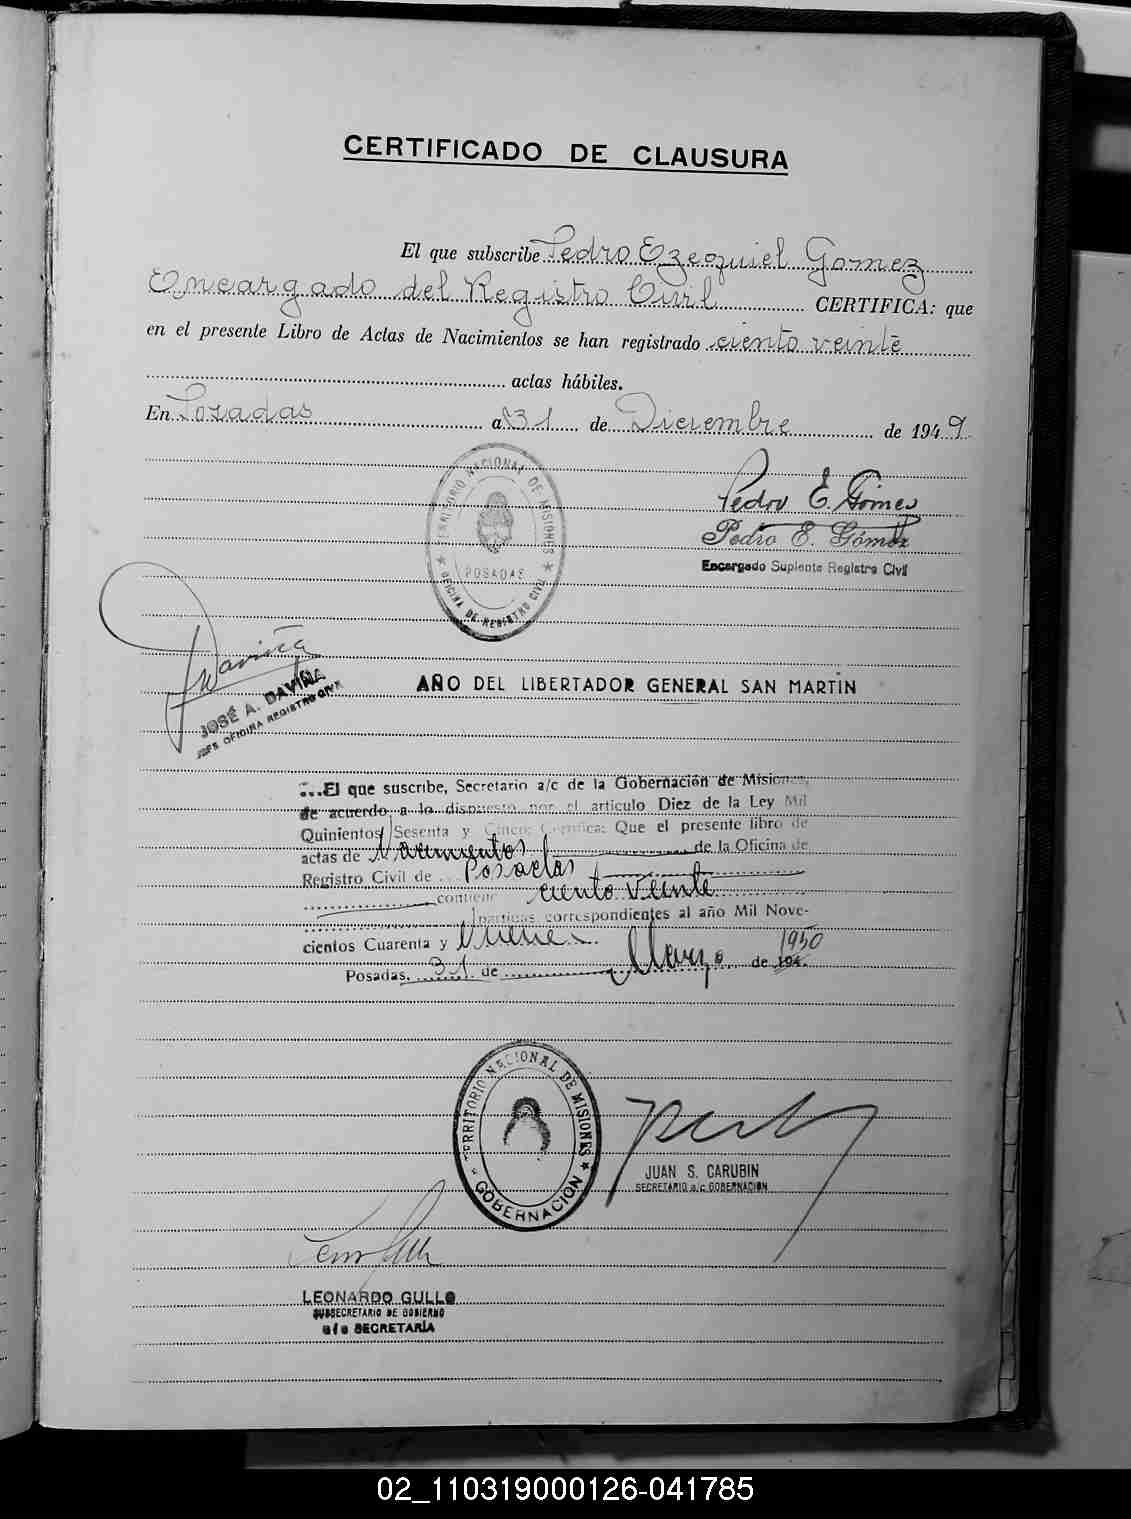 CERTIFICADO DE CLAUSURA
El que subscribe Pedro Ezequiel Gomez
Encargado del Registro Civil CERTIFICA: que
en el presente Libro de Actas de Nacimientos se han registrado ciento veinte
actas hábiles.
En Posadas a 31 de Diciembre de 1949
TERRITORIO NACIONAL DE MISIONES
POSADAS
OFICINA DE REGISTRO CIVIL
Pedro E. Gómez
Pedro E. Gómez
Encargado Suplente Registro Civil
JOSÉ A. DAVIÑA
JEFE OFICINA REGISTRO CIVIL
AÑO DEL LIBERTADOR GENERAL SAN MARTIN
...El que suscribe, Secretario a/c de la Gobernación de Misiones,
de acuerdo a lo dispuesto por el artículo Diez de la Ley Mil
Quinientos Sesenta y Cinco; Certifica: Que el presente libro de
actas de Nacimientos de la Oficina de
Registro Civil de Posadas
contiene ciento veinte
partidas correspondientes al año Mil Nove-
cientos Cuarenta y Nueve
Posadas, 31 de Marzo de 194 1950
TERRITORIO NACIONAL DE MISIONES
GOBERNACION
JUAN S. CARUBIN
SECRETARIO a/c GOBERNACION
LEONARDO GULLO
SUBSECRETARIO DE GOBIERNO
a/c SECRETARÍA
02_110319000126-041785